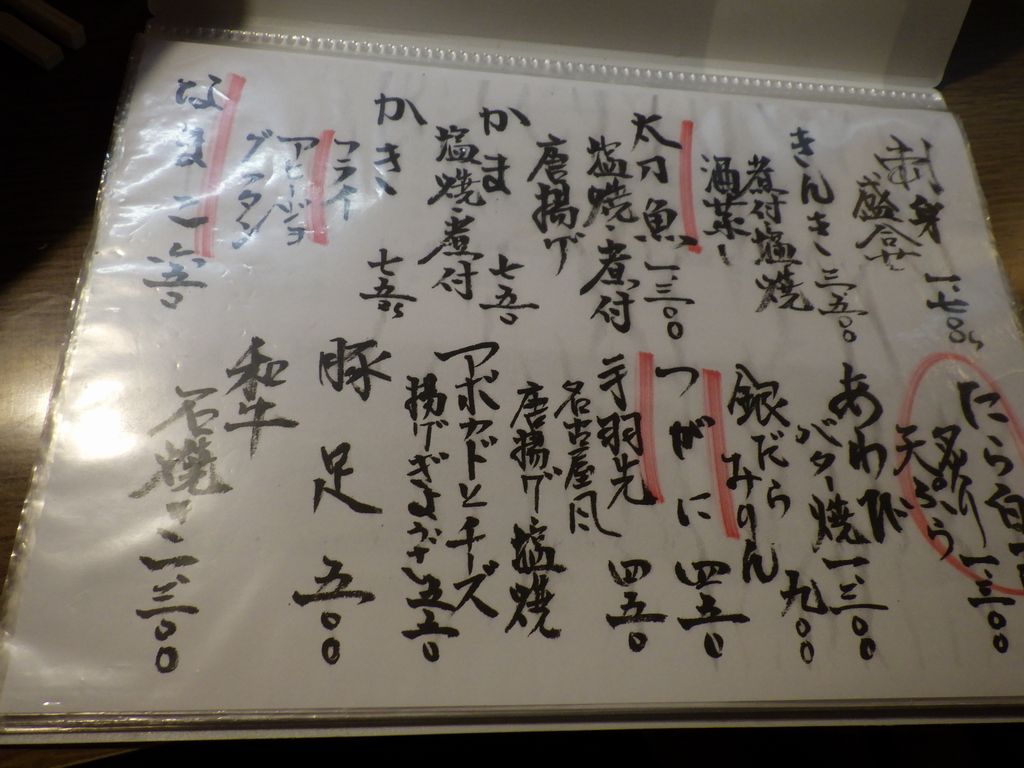 刺身
盛合せ
一.七〇〇から
きんき 三五〇〇
煮付・塩焼
酒蒸し
太刀魚 一三〇〇
塩焼・煮付
唐揚げ
かま 七五〇
塩焼・煮付
かき 七五〇から
フライ
アヒージョ
グラタン
なまこ 六五〇
たら白
炙り 一.三〇〇
天ぷら
あわび 一三〇〇
バター焼
銀だらみりん 九〇〇
つがに 四五〇
手羽先 四五〇
名古屋風
唐揚げ 塩焼
アボカドとチーズ
揚げぎょうざ 五五〇
豚足 五〇〇
和牛
石焼 二.三〇〇